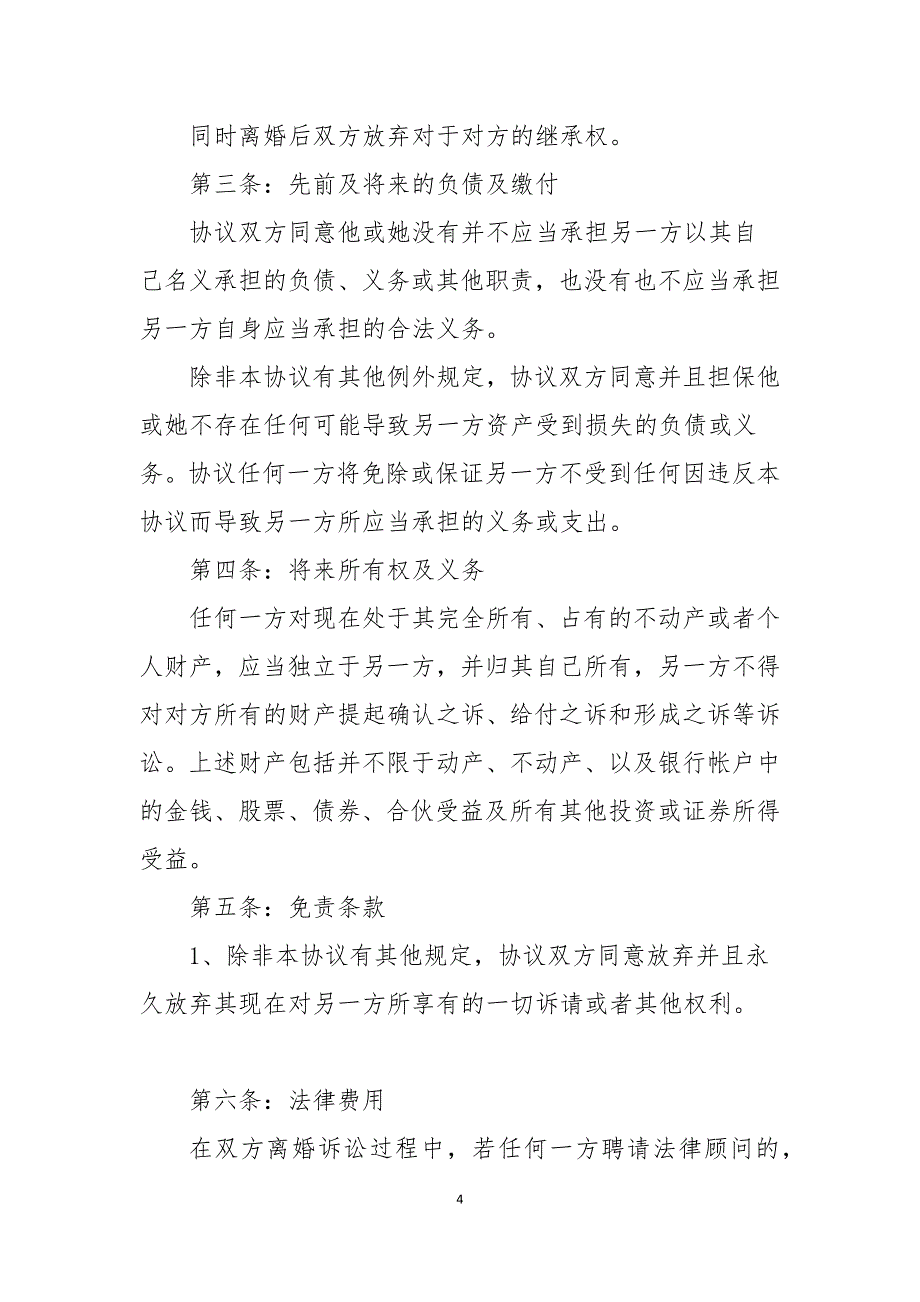 同时离婚后双方放弃对于对方的继承权。
第三条：先前及将来的负债及缴付
协议双方同意他或她没有并不应当承担另一方以其自
己名义承担的负债、义务或其他职责，也没有也不应当承担
另一方自身应当承担的合法义务。
除非本协议有其他例外规定，协议双方同意并且担保他
或她不存在任何可能导致另一方资产受到损失的负债或义
务。协议任何一方将免除或保证另一方不受到任何因违反本
协议而导致另一方所应当承担的义务或支出。
第四条：将来所有权及义务
任何一方对现在处于其完全所有、占有的不动产或者个
人财产，应当独立于另一方，并归其自己所有，另一方不得
对对方所有的财产提起确认之诉、给付之诉和形成之诉等诉
讼。上述财产包括并不限于动产、不动产、以及银行帐户中
的金钱、股票、债券、合伙受益及所有其他投资或证券所得
受益。
第五条：免责条款
1、除非本协议有其他规定，协议双方同意放弃并且永
久放弃其现在对另一方所享有的一切诉请或者其他权利。
第六条：法律费用
在双方离婚诉讼过程中，若任何一方聘请法律顾问的，
4